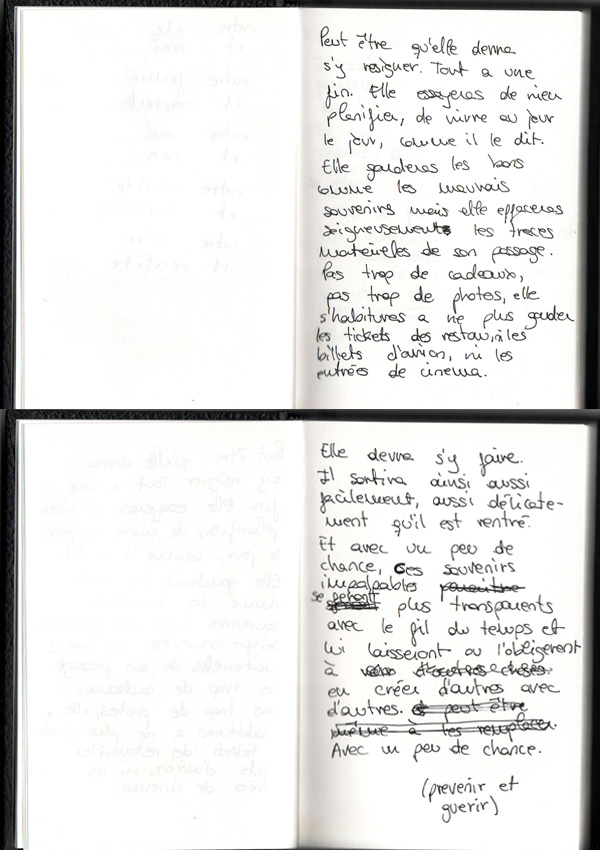 Peut être qu'elle devra
s'y resigner. Tout a une
fin. Elle essayeras de rien
planifier, de vivre au jour
le jour, comme il le dit.
Elle garderas les bons
comme les mauvais
souvenirs mais elle effaceras
soigneusement les traces
materielles de son passage.
Pas trop de cadeaux,
pas trop de photos, elle
s'habitueras a ne plus garder
les tickets des restau, ni les
billets d'avion, ni les
entrées de cinema.
Elle devra s'y faire.
Il sortira ainsi aussi
facilement, aussi délicate-
ment qu'il est rentré.
Et avec un peu de
chance, ces souvenirs
impalpables
se feront plus transparents
avec le fil du temps et
lui laisseront ou l'obligeront
à
en créer d'autres avec
d'autres. et peut être
même à les remplacer.
Avec un peu de chance.
(prevenir et
guerir)